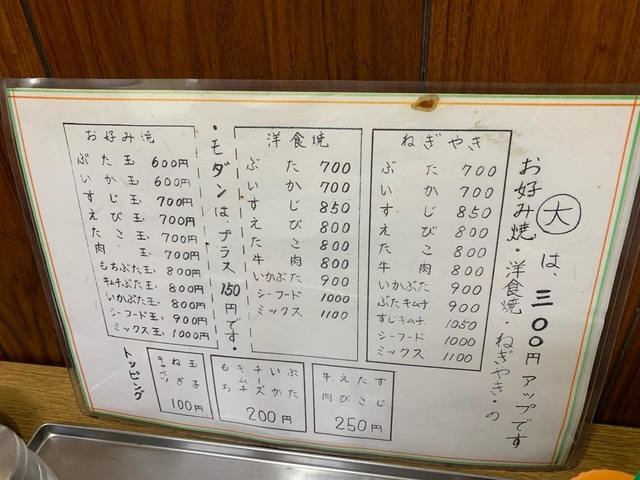 お好み焼・洋食焼・ねぎやき・の
大は、三〇〇円アップです
ねぎやき
ぶた 700
いか 700
すじ 850
えび 800
たこ 800
牛肉 800
いかぶた 900
ぶたキムチ 900
すじキムチ 1050
シーフード 1000
ミックス 1100
洋食焼
ぶた 700
いか 700
すじ 850
えび 800
たこ 800
牛肉 800
いかぶた 900
シーフード 1000
ミックス 1100
・モダンは、プラス150円です・
お好み焼
ぶた玉 600円
いか玉 600円
すじ玉 700円
えび玉 700円
たこ玉 700円
肉玉 700円
もちぶた玉 800円
キムチぶた玉 800円
いかぶた玉 800円
シーフード玉 900円
ミックス玉 1000円
トッピング
玉子
ねぎ
キャベツ
100円
ぶた
いか
チーズ
キムチ
もち
200円
すじ
たこ
えび
牛肉
250円